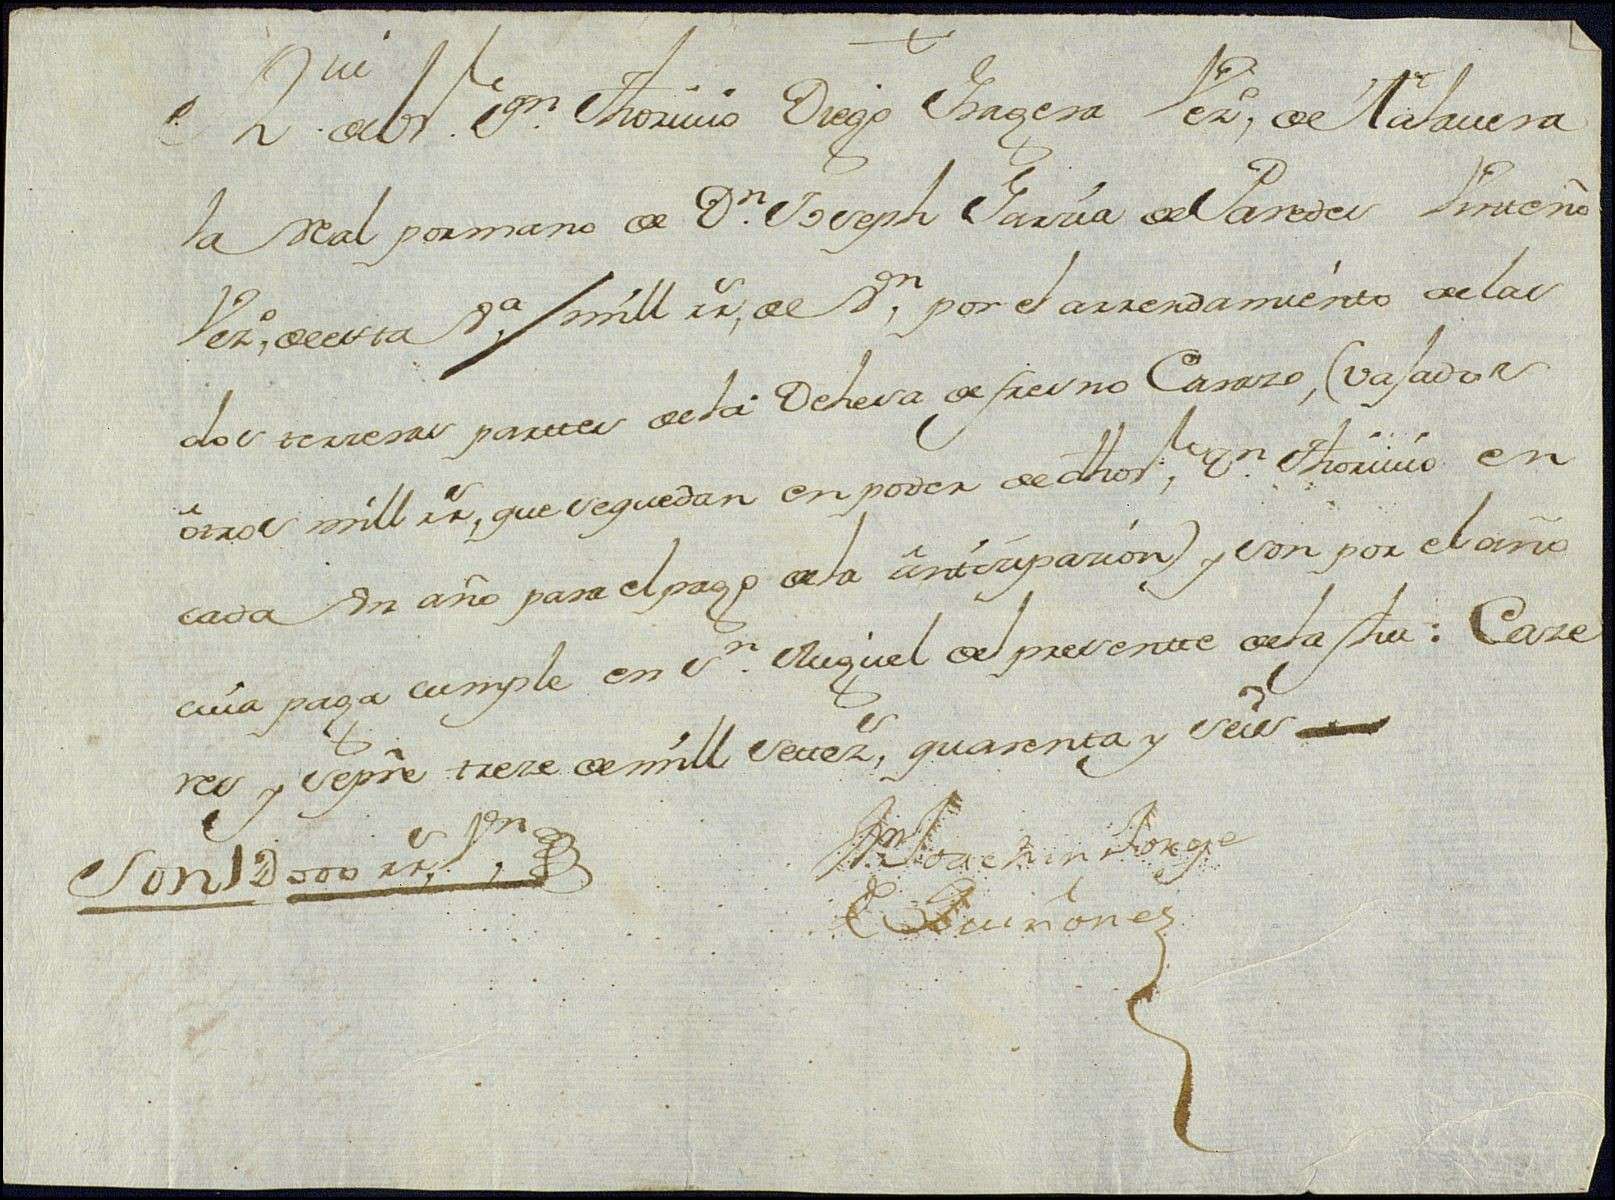 +
Rvi de el Sr. Lizdo. Dn. Thoriuio Diego Thragera Vezo, de Talauera
la Real por mano de Dn. Joseph Garzia de Paredes Vrueño
Vezo, de esta Va, mill rs, de Vn, por el arrendamiento de las
dos terzeras parttes de la Dehesa de fresno Carazo, (vajados
otros mill rs, que se quedan en poder de dho Sr, Dn. Thoriuio en
cada Vn año para el pago de la antizipazion) y son por el año
cuia paga cumple en Sn. Miguel del presentte de la fha: Caze
res y Sepre treze de mill settezs, quarenta y seis
Son 1D000 rs, Vn,
Dn Joachin Jorge
Quiñones